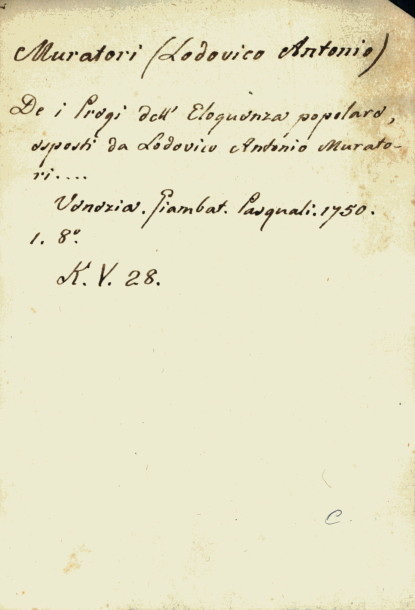 Muratori (Lodovico Antonio)
De i Pregi dell' Eloquenza popolare,
esposti da Lodovico Antonio Murato-
ri....
Venezia. Giambat. Pasquali. 1750.
1. 8º.
K. V. 28.
C